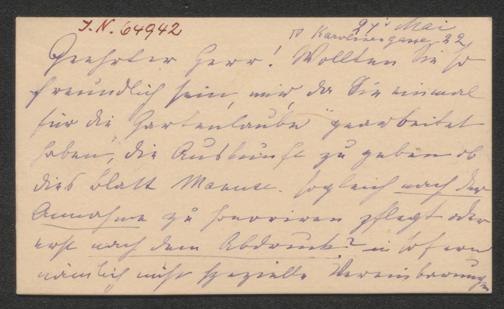 I.N. 64942
Mai
IV Karolinengasse 22
Geehrter Herr! Wollten Sie so
freundlich sein, mir, da Sie einmal
für die „Gartenlaube“ gearbeitet
haben, die Auskunft zu geben ob
dies Blatt Manusc. sogleich nach der
Annahme zu honoriren pflegt oder
erst nach dem Abdruck? insofern
nämlich nicht spezielle Vereinbarungen